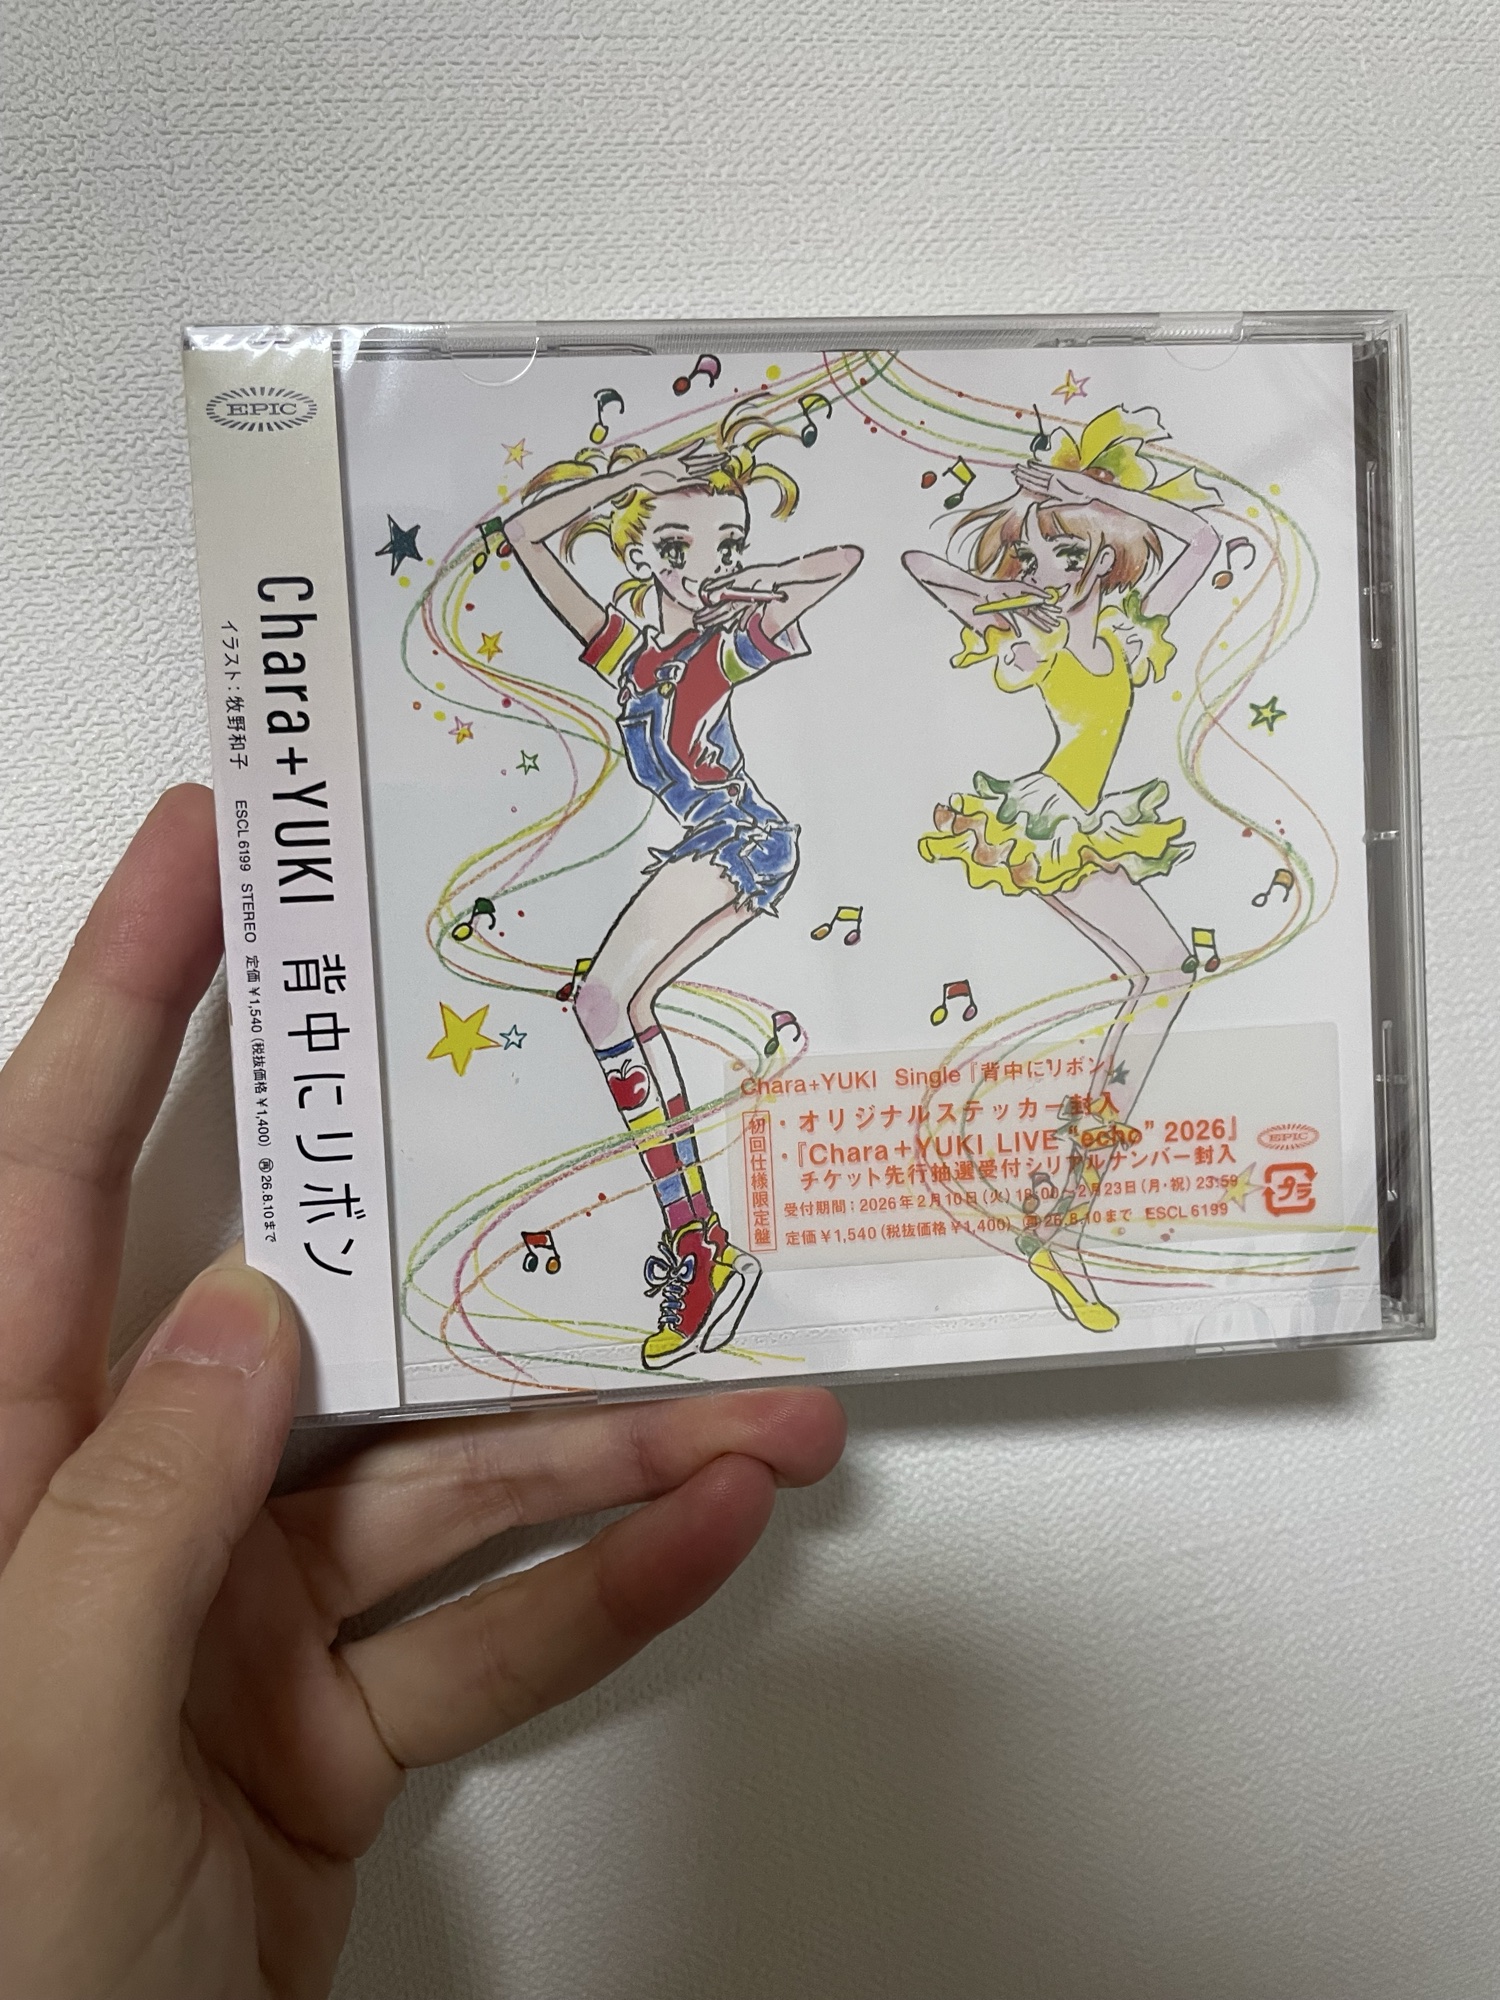 EPIC
Chara+YUKI 背中にリボン
イラスト:牧野和子 ESCL 6199 STEREO 定価¥1,540(税抜価格¥1,400) 再 26.8.10まで
Chara+YUKI Single『背中にリボン』
初回仕様限定盤
・オリジナルステッカー封入
・『Chara+YUKI LIVE “echo” 2026』
チケット先行抽選受付シリアルナンバー封入
受付期間:2026年2月10日(火)18:00〜2月23日(月・祝)23:59
定価¥1,540(税抜価格¥1,400) 再 26.8.10まで ESCL 6199
EPIC
プラ